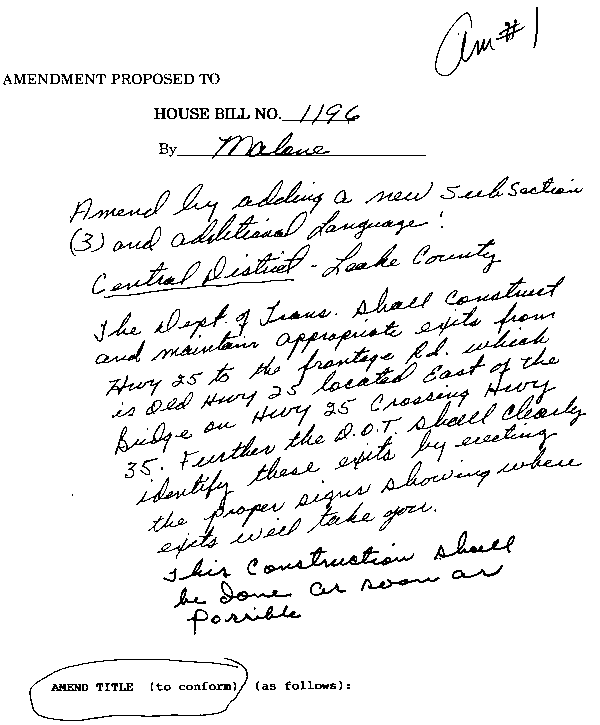 Am #1
AMENDMENT PROPOSED TO
HOUSE BILL NO. 1196
By Malone
Amend by adding a new subsection
(3) and additional language:
Central District - Leake County
The Dept. of Trans. shall construct
and maintain appropriate exits from
Hwy 25 to the frontage Rd. which
is Old Hwy 25 located East of the
Bridge on Hwy 25 Crossing Hwy
35. Further the D.O.T. shall clearly
identify these exits by erecting
the proper signs showing where
exits will take you.
This Construction shall
be done as soon as
possible
AMEND TITLE (to conform) (as follows):